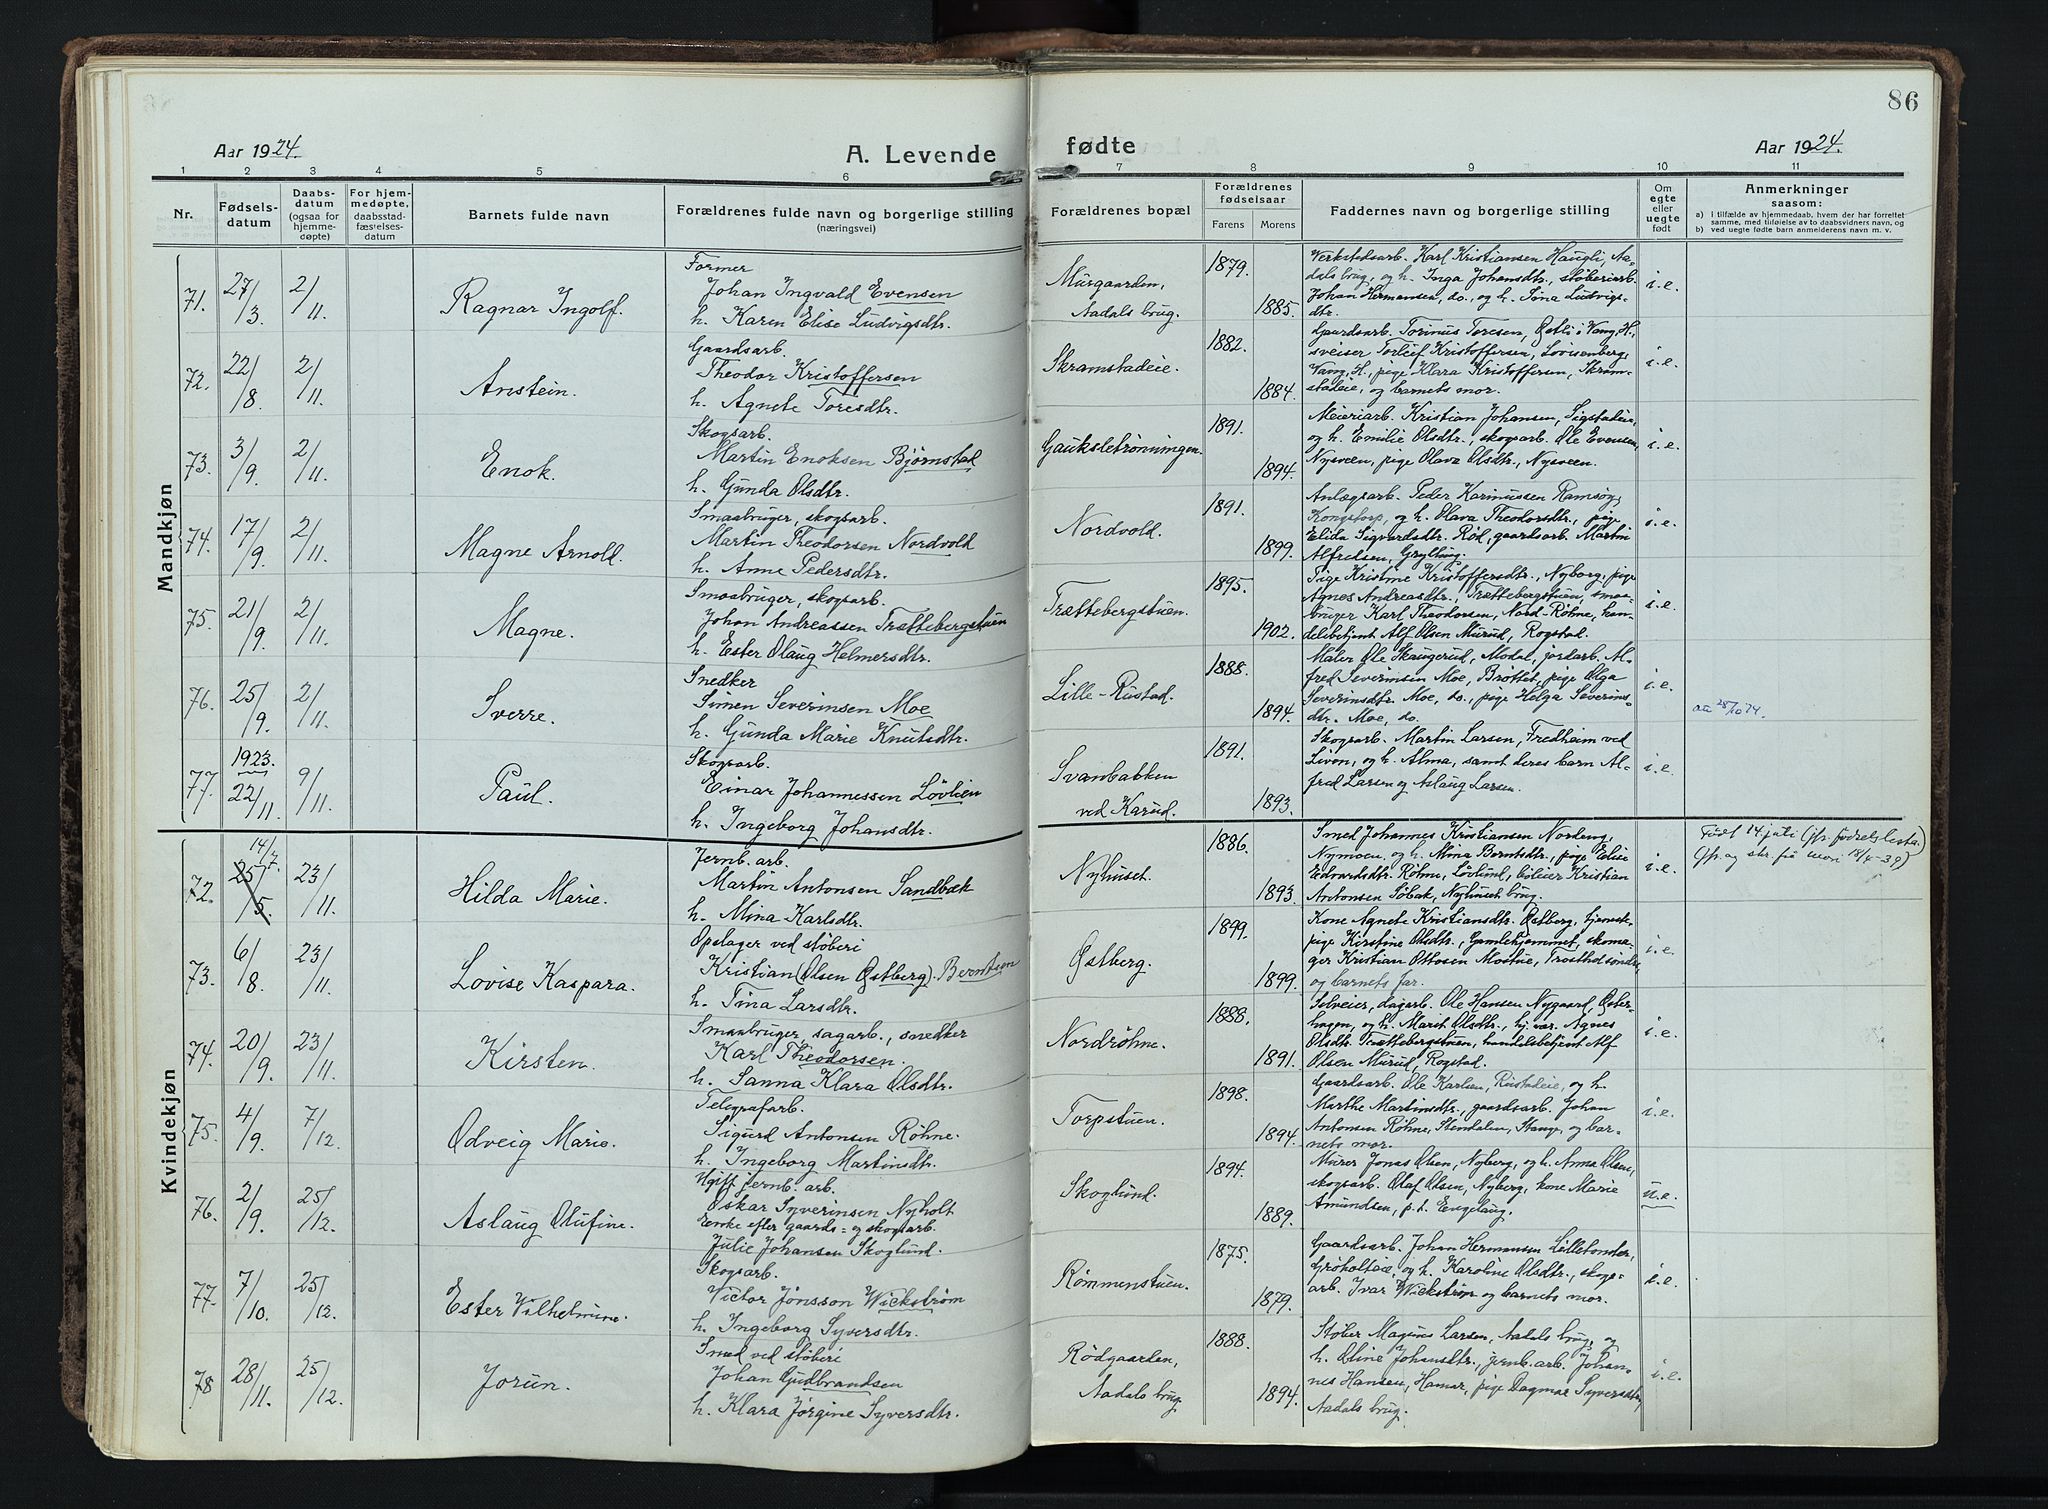 86
Aar 1924.
A. Levende
fødte
Aar 1924.
1 2 3 4 5 6 7 8 9 10 11
Nr.
Fødsels-
datum
Daabs-
datum
(ogsaa for
hjemme-
døpte)
For hjem-
medøpte,
daabsstad-
fæstelses-
datum
Barnets fulde navn
Forældrenes fulde navn og borgerlige stilling
(næringsvei)
Forældrenes bopæl
Forældrenes
fødselsaar
Farens
Morens
Faddernes navn og borgerlige stilling
Om
egte
eller
uegte
født
Anmerkninger
saasom:
a) i tilfælde av hjemmedaab, hvem der har forrettet
samme, med tilføielse av to daabsvidners navn, og
b) ved uegte fødte barn anmelderens navn m. v.
Mandkjøn
71. 27/3. 2/11. Ragnar Ingolf.
Former
Johan Ingvald Evensen
h. Karen Elise Ludvigsdtr.
Murgaarden,
Aadals brug.
1879.
1885.
Verkstedsarb. Karl Kristiansen Haugli, Aa-
dals brug, og h. Inga Johansdtr., støberiarb.
Johan Hermansen, do., og h. Tina Ludvigs-
dtr.
i.e.
72. 22/8. 2/11. Arnstein.
Gaardsarb.
Theodor Kristoffersen
h. Agnete Toresdtr.
Skramstadeie.
1882.
1884.
Gaardsarb. Torinus Toresen, Østli i Vang, H.,
sveiser Torleif Kristoffersen, Lovisenberg,
Vang, H., pige Klara Kristoffersen, Skram-
stadeie, og barnets mor.
i.e.
73. 3/9. 2/11. Enok.
Skogsarb.
Martin Enoksen Bjørnstad
h. Gunda Olsdtr.
Gaukstetrønningen.
1891.
1894.
Meieriarb. Kristian Johansen, Sigstadeie,
og h. Emilie Olsdtr., skogsarb. Ole Evensen,
Nysveen, pige Olava Olsdtr., Nysveen.
i.e.
74. 17/9. 2/11. Magne Arnold.
Smaabruger, skogsarb.
Martin Theodorsen Nordvold
h. Anne Pedersdtr.
Nordvold.
1891.
1899.
Anlægsarb. Peder Karinussen Ramsøy,
Kongstorp, og h. Olava Theodorsdtr., pige
Elida Sigvardsdtr. Rød, gaardsarb. Martin
Alfredsen, Grylting.
i.e.
75. 21/9. 2/11. Magne.
Smaabruger, skogsarb.
Johan Andreassen Trættebergstuen
h. Ester Olaug Helmersdtr.
Trættebergstuen.
1895.
1902.
Pige Kristine Kristoffersdtr., Nyborg, pige
Agnes Andreasdtr., Trættebergstuen, smaa-
bruger Karl Theodorsen, Nord-Røhne, han-
delsbetjent Alf Olsen Murud, Rogstad.
i.e.
76. 25/9. 2/11. Sverre.
Snedker
Simen Severinsen Moe
h. Gunda Marie Knutsdtr.
Lille-Rustad.
1888.
1894.
Maler Ole Skaugerud, Modal, jordarb. Al-
fred Severinsen Moe, Brøttet, pige Olga
Severinsdtr. Moe, do., pige Helga Severins-
dtr. Moe, do.
i.e.
28/10 74.
77. 1923. 22/11. 9/11. Paul.
Skogsarb.
Einar Johannessen Løvlien
h. Ingeborg Johansdtr.
Svanbakken
ved Karud.
1891.
1893.
Skogsarb. Martin Larsen, Fredheim ved
Livon, og h. Alma, samt deres barn Al-
fred Larsen og Aslaug Larsen.
i.e.
Kvindekjøn
72. 14/7 25/5. 23/11. Hilda Marie.
Jernb. arb.
Martin Antonsen Sandbæk
h. Mina Karlsdtr.
Nyhuset.
1886.
1893.
Smed Johannes Kristiansen Nordeng,
Nymoen, og h. Mina Berntsdtr., pige Elise
Edvardsdtr. Røhne, Løvlund, Kristian
Antonsen Søbak, Nyhuset brug.
i.e.
Født 14. juli (jfr. fødselsliste.
Jfr. og skr. fra mori 18/4-39)
73. 6/8. 23/11. Lovise Kaspara.
Opslager ved støberi
Kristian (Olsen Østberg). Berntsen
h. Tina Larsdtr.
Østberg.
1899.
1899.
Kone Agnete Kristiansdtr. Østberg, tjeneste-
pige Kirstine Olsdtr., Gamlehjemmet, skoma-
ger Kristian Ottosen Mostue, Trosthol søndre,
og barnets far.
i.e.
74. 20/9. 23/11. Kirsten.
Smaabruger, sagarb., snedker
Karl Theodorsen.
h. Sanna Klara Olsdtr.
Nordrøhne.
1888.
1891.
Selveier, dagarb. Ole Hansen Nygaard, Øster-
hagen, og h. Marit Olsdtr., hj.vær. Agnes
Olsdtr. Trættebergstuen, handelsbetjent Alf
Olsen Murud, Rogstad.
i.e.
75. 4/9. 7/12. Odveig Marie.
Telegrafarb.
Sigurd Antonsen Røhne.
h. Ingeborg Martinsdtr.
Torpstuen.
1898.
1894.
Gaardsarb. Ole Karlsen, Rustadeie, og h.
Marthe Martinsdtr., gaardsarb. Johan
Antonsen Røhne, Stendalen, Stange, og bar-
nets mor.
i.e.
76. 2/9. 25/12. Aslaug Olufine.
Ugift jernb. arb.
Oskar Syverinsen Nyholt
Enke efter gaards- og skogsarb.
Julie Johansen Skoglund.
Skoglund.
1894.
1889.
Murer Jonas Olsen, Nyberg, og h. Anna Olsen,
skogsarb. Olaf Olsen, Nyberg, kone Marie
Amundsen, p.t. Engelaug.
u.e.
77. 7/10. 25/12. Ester Vilhelmine.
Skogsarb.
Victor Jonsson Wickstrøm
h. Ingeborg Syversdtr.
Rømmenstuen.
1875.
1879.
Gaardsarb. Johan Hermansen Lilletonder,
Grøholteie, og h. Karoline Olsdtr., skogs-
arb. Ivar Wickstrøm og barnets mor.
i.e.
78 28/11. 25/12. Jorun.
Smed ved støberi
Johan Gudbrandsen
h. Klara Jørgine Syversdtr.
Rødgaarden,
Aadals brug.
1888.
1894.
Støber Magnus Larsen, Aadals brug, og
h. Oline Johansdtr., jernb. arb. Johan-
nes Hansen, Hamar, pige Dagmar Syversdtr.,
Aadals brug.
i.e.